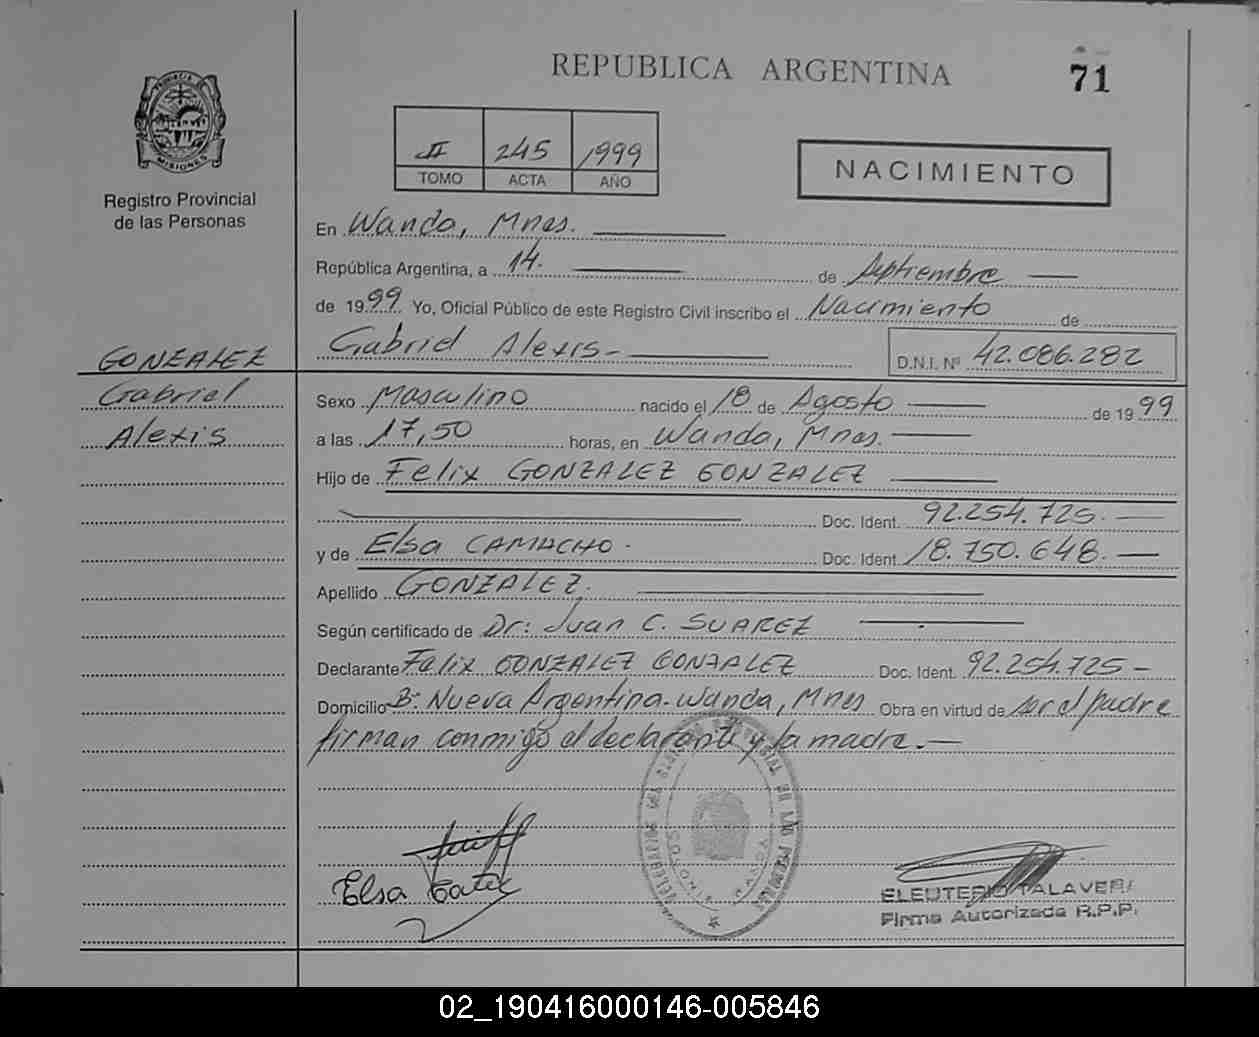 REPUBLICA ARGENTINA
71
PROVINCIA DE MISIONES
Registro Provincial
de las Personas
II 245 1999
TOMO ACTA AÑO
NACIMIENTO
En Wanda, Mnes.
República Argentina, a 14. de Septiembre
de 1999 Yo, Oficial Público de este Registro Civil inscribo el Nacimiento de
Gabriel Alexis- D.N.I. Nº 42.086.282
GONZALEZ
Gabriel
Alexis
Sexo Masculino nacido el 18 de Agosto de 1999
a las 17,50 horas, en Wanda, Mnes.
Hijo de Felix GONZALEZ GONZALEZ
Doc. Ident. 92.254.725.
y de Elsa CAMACHO. Doc. Ident. 18.750.648.
Apellido GONZALEZ.
Según certificado de Dr: Juan C. SUAREZ
Declarante Felix GONZALEZ GONZALEZ Doc. Ident. 92.254.725-
Domicilio Bº Nueva Argentina-Wanda, Mnes Obra en virtud de ser el padre
firman conmigo el declarante y la madre.-
Elsa
MISIONES WANDA
ELEUTERIO TALAVERA
Firma Autorizada R.P.P.
02_190416000146-005846